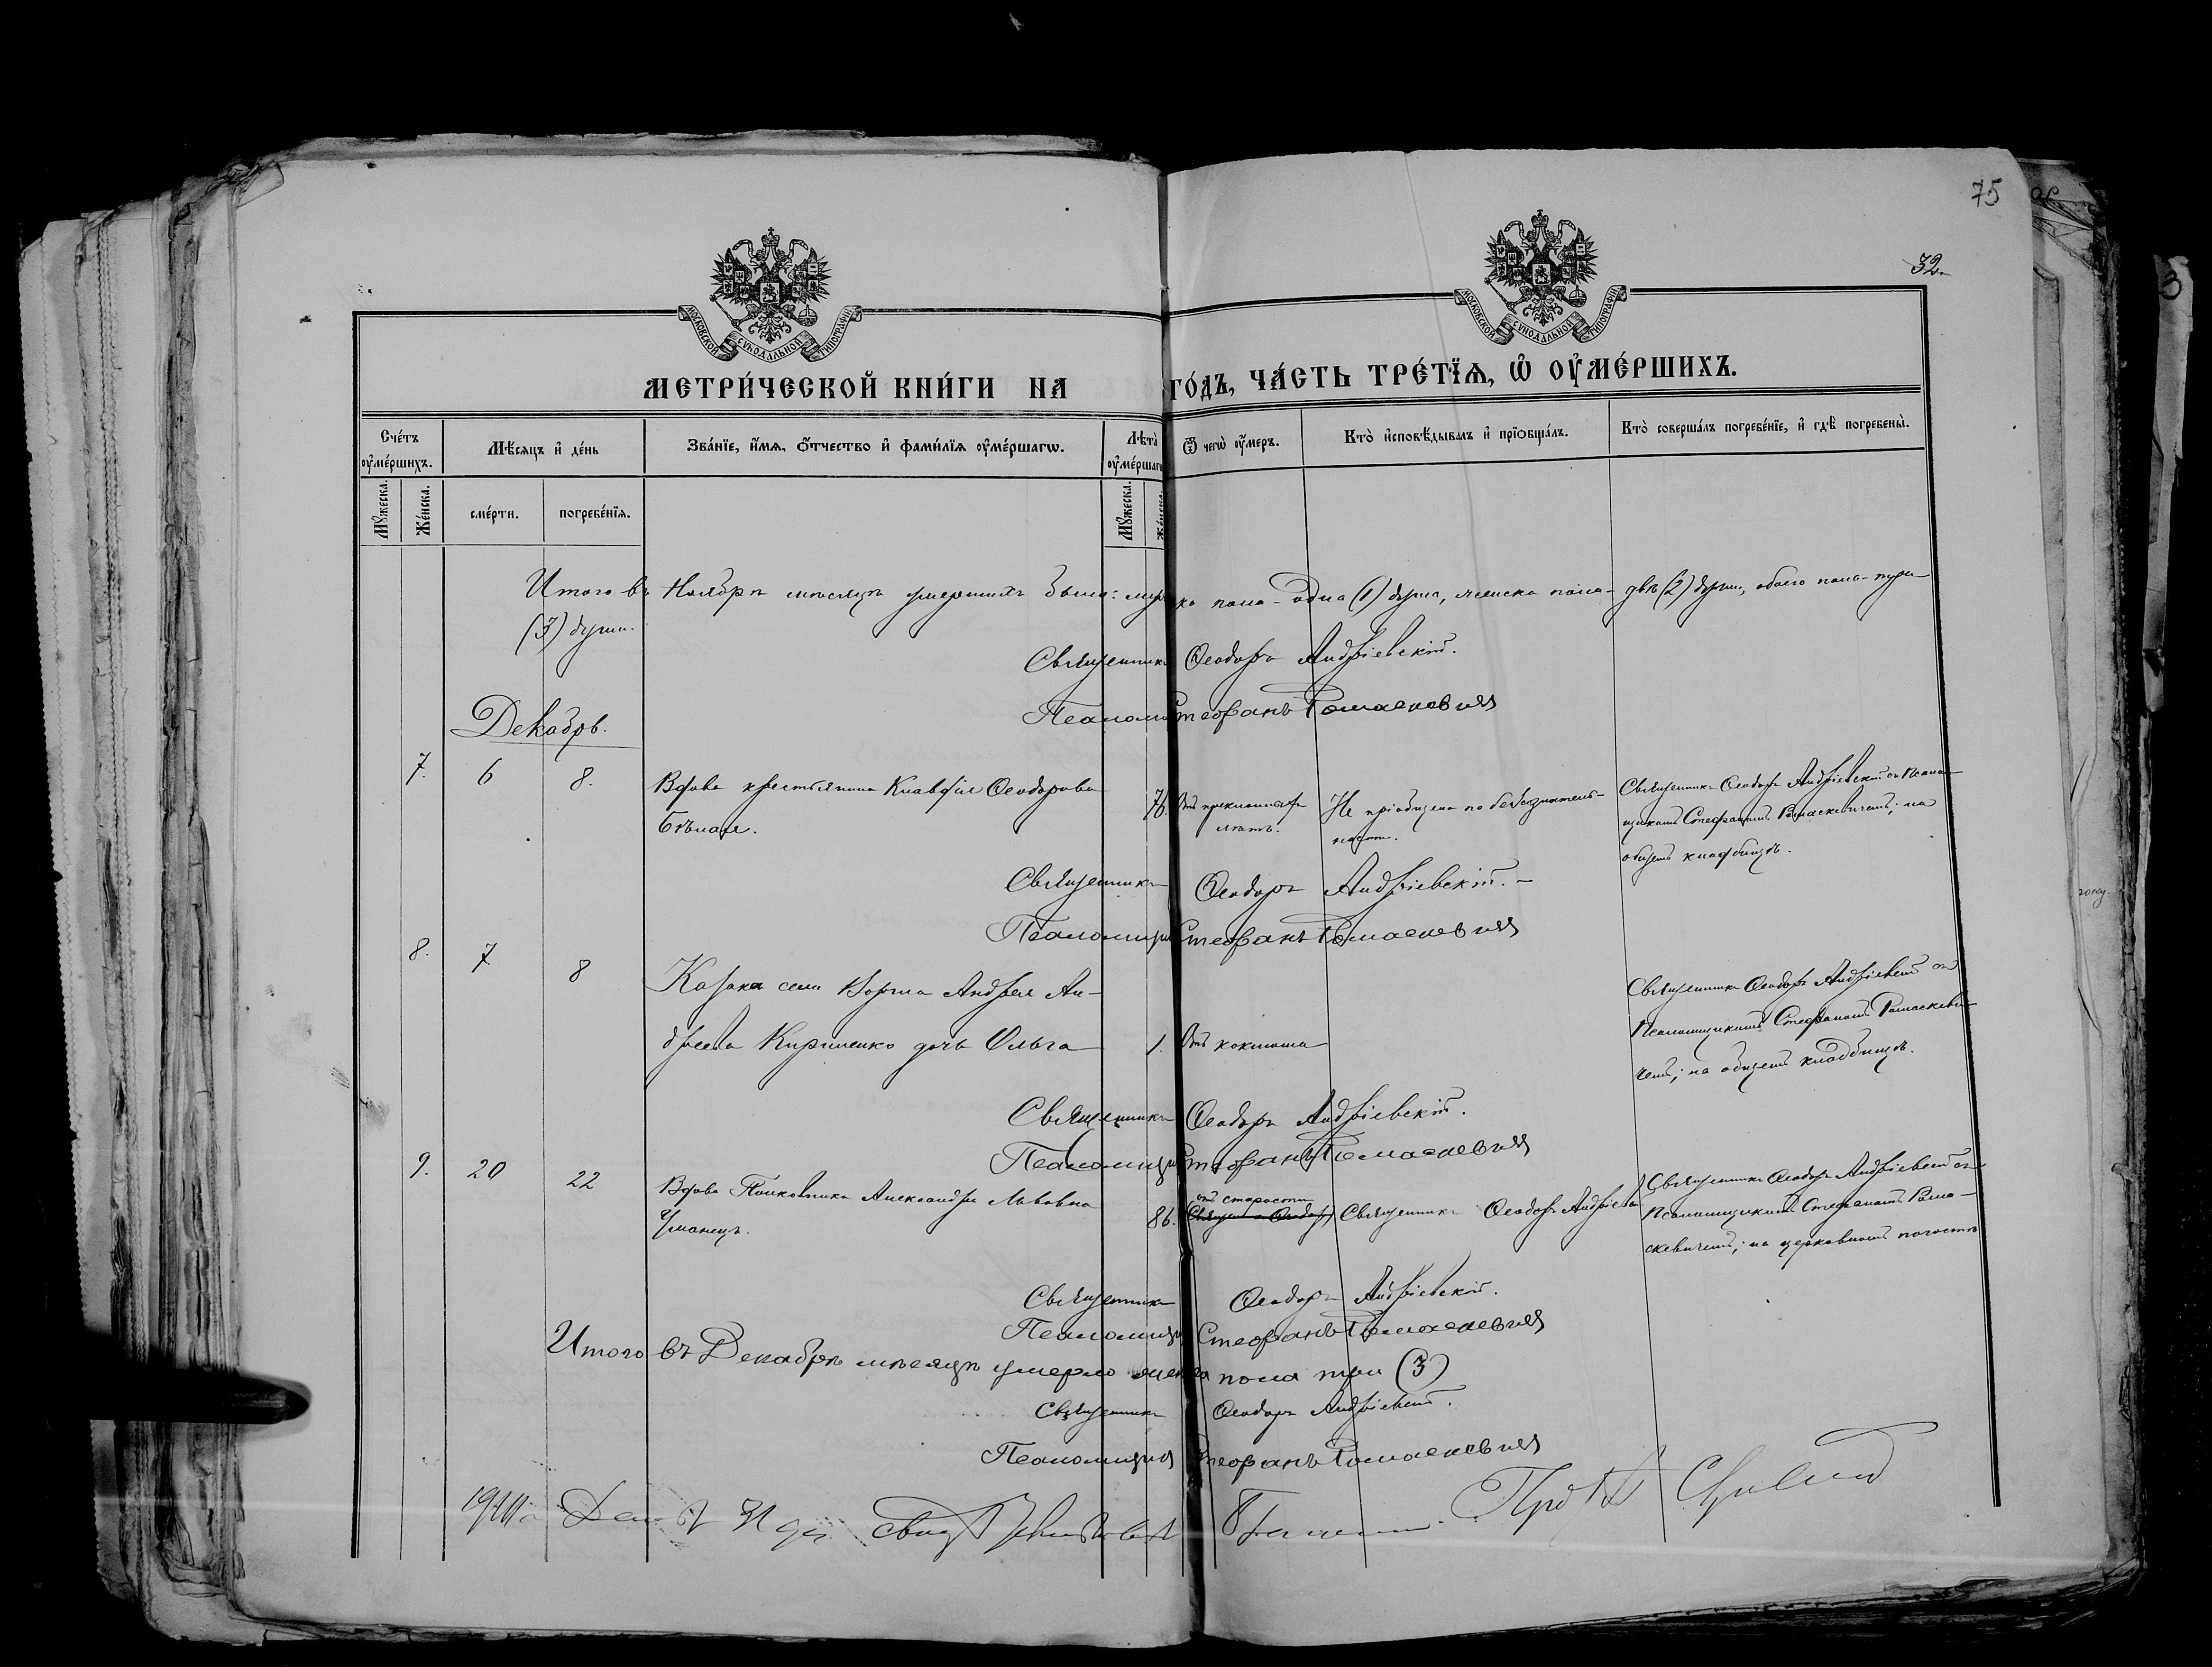 75
32.
МОСКОВСКОЙ СѴНОДАЛЬНОЙ ТИПОГРАФІИ
МОСКОВСКОЙ СѴНОДАЛЬНОЙ ТИПОГРАФІИ
МЕТРИ́ЧЕСКОЙ КНИ́ГИ НА ГО́ДЪ, ЧА́СТЬ ТРЕ́ТЇѦ, Ѡ҆ ОУ҆МЕ́РШИХЪ.
Сче́тъ оу҆ме́ршихъ.
Мѣ́сяцъ и҆ де́нь
Зва́нїе, и҆́мѧ, ѻ҆́тчество и҆ фами́лїѧ оу҆ме́ршагѡ.
Лѣ́та оу҆ме́ршагѡ
Ѿ чегѡ̀ оу҆́меръ.
Кто̀ и҆сповѣ́дывалъ и҆ прїѡбща́лъ.
Кто̀ соверша́лъ погребе́нїе, и҆ гдѣ̀ погребены̀.
Мꙋ́жеска. Же́нска. сме́рти. погребе́нїѧ. Мꙋ́жеска. Же́нска.
Итого въ Ноябрѣ мѣсяцѣ умершихъ было: мужеска пола - одна (1) душа, женска пола - двѣ (2) души, обоего пола - три
(3) души.
Священникъ Ѳеодоръ Андріевскій.
Псаломщикъ Стефанъ Ромаскевичъ
Декабрь.
7. 6 8. Вдова крестьянина Клавдія Ѳеодорова
76. Отъ преклонныхъ лѣтъ. Не пріобщена по
Священникъ Ѳеодоръ Андріевскій съ Псаломщикомъ Стефаномъ Ромаскевичемъ; на
общемъ кладбищѣ.
Священникъ Ѳеодоръ Андріевскій. -
Псаломщикъ Стефанъ Ромаскевичъ
8. 7 8 Казака села Андрея Андреева Кириленко дочь Ольга
1. Отъ коклюша
Священникъ Ѳеодоръ Андріевскій съ
Псаломщикомъ Стефаномъ Ромаскевичемъ; на общемъ кладбищѣ.
Священникъ Ѳеодоръ Андріевскій.
Псаломщикъ Стефанъ Ромаскевичъ
9. 20 22 Вдова Полковника Александра Львовна
Уманецъ.
86. отъ старости Священникъ Ѳеодоръ Андріевскій
Священникъ Ѳеодоръ Андріевскій съ
Псаломщикомъ Стефаномъ Ромаскевичемъ; на церковномъ погостѣ
Священникъ Ѳеодоръ Андріевскій.
Псаломщикъ Стефанъ Ромаскевичъ
Итого въ Декабрѣ мѣсяцѣ умерло женска пола три (3)
Священникъ Ѳеодоръ Андріевскій.
Псаломщикъ Стефанъ Ромаскевичъ